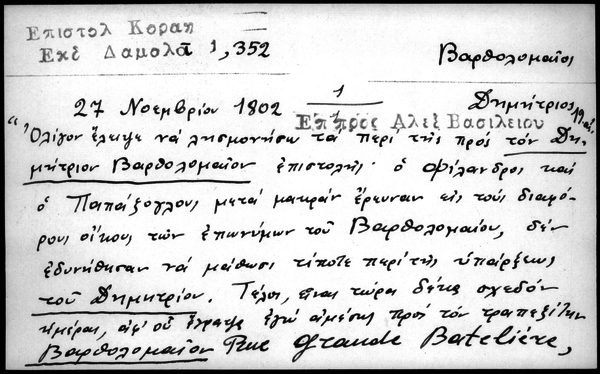 Επιστολ Κοραη
Εκδ Δαμαλᾶ 1,352
Βαρθολομαῖος
1
Δημήτριος
27 Νοεμβρίου 1802
Ἐπ πρὸς Αλεξ Βασιλειου
"Ὀλίγον ἔλειψε νὰ λησμονήσω τὰ περὶ τῆς πρὸς τὸν Δη-
μήτριον Βαρθολομαῖον ἐπιστολῆς· ὁ Φίλανδρος καὶ
ὁ Παπάζογλους μετὰ μακρὰν ἔρευναν εἰς τοὺς διαφό-
ρους οἴκους τῶν ἐπωνύμων τοῦ Βαρθολομαίου, δὲν
ἐδυνήθησαν νὰ μάθωσι τίποτε περὶ τῆς ὑπάρξεως
τοῦ Δημητρίου. Τέλος, εἶναι τώρα δέκα σχεδὸν
ἡμέραι, ἀφ' οὗ ἔγραψα ἐγὼ ἀμέσως πρὸς τὸν τραπεζίτην
Βαρθολομαῖον Rue Grande Batelière,